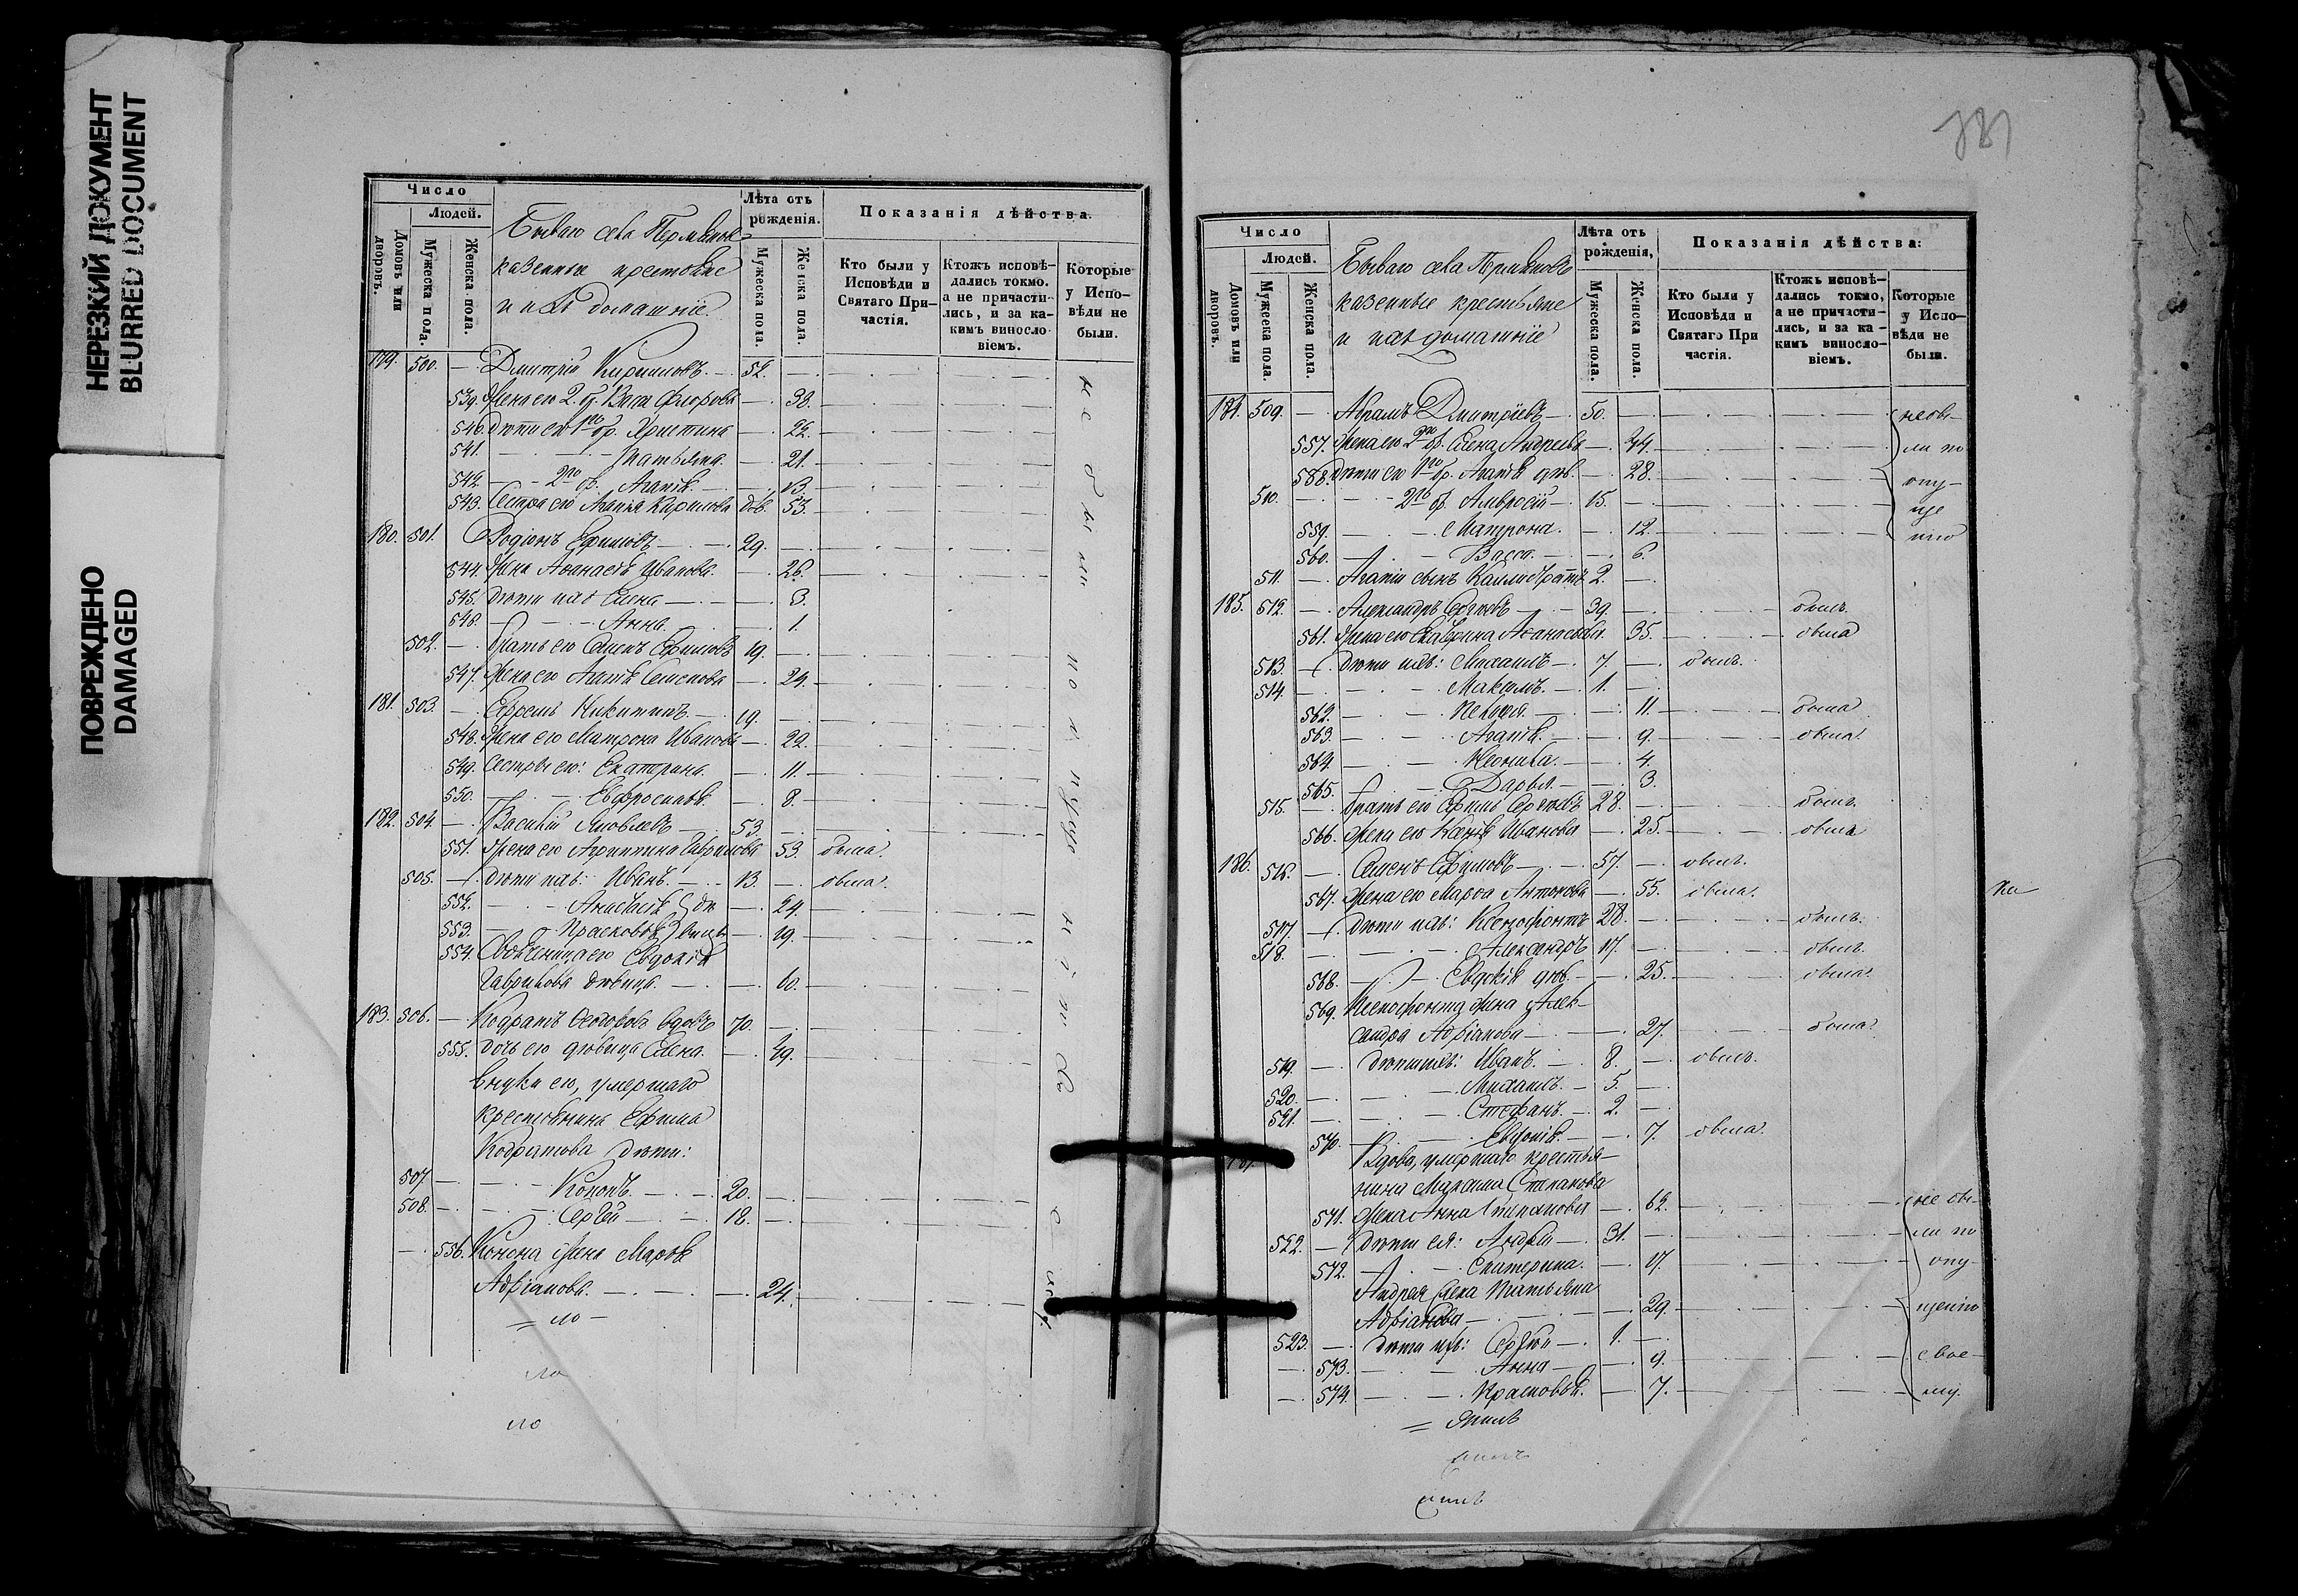 НЕРЕЗКИЙ ДОКУМЕНТ
BLURRED DOCUMENT
ПОВРЕЖДЕНО
DAMAGED
Число
Людей.
Домовъ или дворовъ.
Мужеска пола.
Женска пола.
казенные крестьяне
и ихъ домашніе
Лѣта отъ рожденія.
Мужеска пола.
Женска пола.
Показанія дѣйства.
Кто были у Исповѣди и Святаго Причастія.
Ктожъ исповѣдались токмо. а не причастились, и за какимъ винословіемъ.
Которые у Исповѣди не были.
179. 500. — Дмитрій Кириловъ. — 52. —
539. Жена его 2. бр. Васа Флорова — 38.
540. Дѣти его 1го бр. Христина — 22.
541. — Татьяна. — 21.
542. — 2го бр. Агапія. — 13.
543. Сестра его Агапія Карпова дѣв. 53.
180. 501. Родіонъ Ефимовъ — 29. —
544. Жена Афанасія Иванова. — 26.
545. Дѣти ихъ Елена — 3.
546. — Анна. — 1.
502. — Братъ его Семенъ Ефимовъ 19. —
547. Жена его Агапія Семенова — 24.
181. 503. — Ефремъ Никитинъ. — 19. —
548. Жена его Матрона Иванова — 22.
549. Сестры его: Екатерина. — 11.
550. — Евфросинія. — 8.
182. 504. — Василій Яковлевъ — 53. —
551. Жена его Агрипина Гаврилова 53. была.
505. — Дѣти ихъ: Иванъ. — 13. —
552. — Анастасія — 24.
553. — Прасковья — 19.
554. Евдокія
Гаврилова дѣвица. — 60.
183. 506. — Кодратъ вдовъ 70. —
555. Дочь его дѣвица Елена. — 49.
Внуки его, умершаго
крестьянина Ефима
Кодратова дѣти:
507. — Кононъ. — 20. —
508. — Сергѣй — 18. —
556. Конона жена Марфа
Адріанова. — 24.
не были по
Число
Людей.
Домовъ или дворовъ.
Мужеска пола.
Женска пола.
казенные крестьяне
и ихъ домашніе
Лѣта отъ рожденія,
Мужеска пола.
Женска пола.
Показанія дѣйства:
Кто были у Исповѣди и Святаго При частія.
Ктожъ исповѣдались токмо, а не причастились, и за какимъ винословіемъ.
Которые у Исповѣди не были.
184. 509. — Абрамъ Дмитріевъ — 50. —
557. Жена его 2го бр. Елена Андреева — 44.
558. Дѣти его 1го бр. Агапія дѣв. — 28.
510. — 2го бр. Амвросій — 15. —
559. — Матрона. — 12.
560. — Васса. — 6.
511. — Агапіи сынъ Каллистратъ 2. —
не бы-
ли по
опу-
ще
нію
185. 512. — Александръ Сергѣевъ — 39. — былъ.
561. Жена его Екатерина Афанасьева. 35. — была
513. — Дѣти ихъ: Михаилъ — 7. — былъ.
514. — Максимъ. — 1. —
562. — 11. — была
563. — Агапія. — 9. — была.
564. — Неонила. — 4.
565. — Дарья. — 3.
515. — Братъ его Ефимъ Сергѣевъ 28. — былъ.
566. Жена его Ксенія Иванова — 25. — была
186. 516. — Семенъ Ефимовъ — 57. — былъ.
567. Жена его Марфа Антонова — 55. была.
517. — Дѣти ихъ: Ксенофонтъ 28. — былъ.
518. — Александръ 17. — былъ.
568. — Евдокія дѣв. — 25. — была.
569. Ксенофонта жена Алек-
сандра Адріанова — 27. — была.
519. — Дѣти ихъ: Иванъ. — 8. — былъ.
520. — Михаилъ. — 5. —
521. — Стефанъ. — 2. —
570. — Евдокія. — 7. была.
Вдова, умершаго крестья-
нина Максима Степанова
571. Жена Анна Степанова — 62.
522. — Дѣти ея: Андрей — 31. —
572. — Екатерина. — 17.
Андрея жена Татьяна
Адріанова — 29.
523. — Дѣти ихъ: Сергѣй — 1. —
573. — Анна — 9.
574. — Прасковья. — 7.
не бы-
ли по
опу-
щенію
свое-
му.